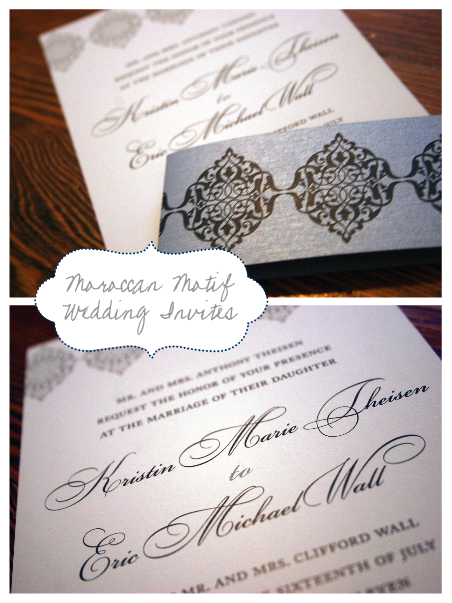 MR. AND MRS. ANTHONY THEISEN
REQUEST THE HONOR OF YOUR PRESENCE
AT THE MARRIAGE OF THEIR DAUGHTER
Kristin Marie Theisen
to
Eric Michael Wall
CLIFFORD WALL
JULY
Moroccan Motif
Wedding Invites
MR. AND MRS. ANTHONY THEISEN
REQUEST THE HONOR OF YOUR PRESENCE
AT THE MARRIAGE OF THEIR DAUGHTER
Kristin Marie Theisen
to
Eric Michael Wall
MR. AND MRS. CLIFFORD WALL
SIXTEENTH OF JULY